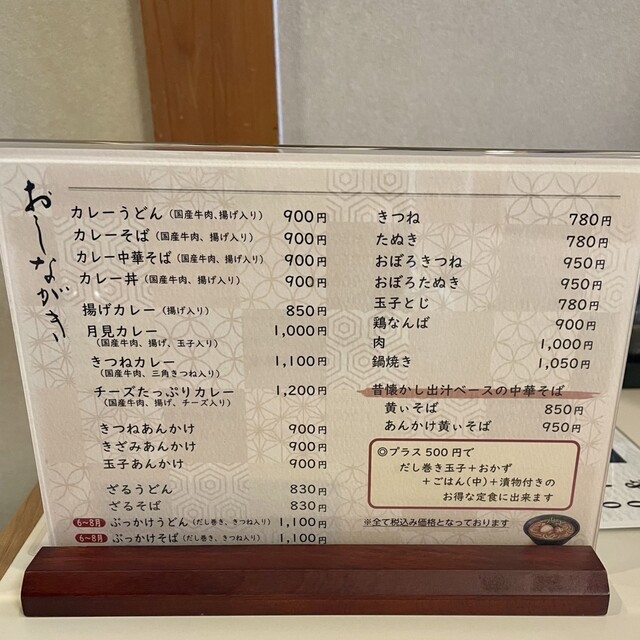 おしながき
カレーうどん（国産牛肉、揚げ入り） 900円
カレーそば（国産牛肉、揚げ入り） 900円
カレー中華そば（国産牛肉、揚げ入り） 900円
カレー丼（国産牛肉、揚げ入り） 900円
揚げカレー（揚げ入り） 850円
月見カレー 1,000円
（国産牛肉、揚げ、玉子入り）
きつねカレー 1,100円
（国産牛肉、三角きつね入り）
チーズたっぷりカレー 1,200円
（国産牛肉、揚げ、チーズ入り）
きつねあんかけ 900円
きざみあんかけ 900円
玉子あんかけ 900円
ざるうどん 830円
ざるそば 830円
6〜8月 ぶっかけうどん（だし巻き、きつね入り） 1,100円
6〜8月 ぶっかけそば（だし巻き、きつね入り） 1,100円
きつね 780円
たぬき 780円
おぼろきつね 950円
おぼろたぬき 950円
玉子とじ 780円
鶏なんば 900円
肉 1,000円
鍋焼き 1,050円
昔懐かし出汁ベースの中華そば
黄ぃそば 850円
あんかけ黄ぃそば 950円
◎プラス500円で
だし巻き玉子＋おかず
＋ごはん（中）＋漬物付きの
お得な定食に出来ます
※全て税込み価格となっております